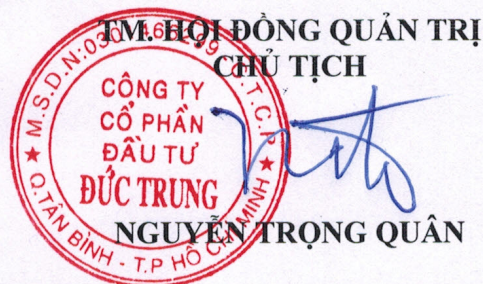 TM. HỘI ĐỒNG QUẢN TRỊ
CHỦ TỊCH
CÔNG TY
CỔ PHẦN
ĐẦU TƯ
ĐỨC TRUNG
M.S.D.N:
C.T.C.P
Q.TÂN BÌNH - T.P HỒ CHÍ MINH
NGUYỄN TRỌNG QUÂN